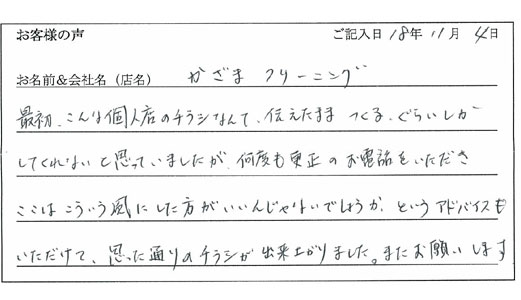 お客様の声 ご記入日 18年 11月 4日
お名前&会社名（店名） かざま クリーニング
最初、こんな個人店のチラシなんて、伝えたまま つくる、ぐらいしか
してくれないと思っていましたが、何度も更正のお電話をいただき
ここはこういう風にした方がいいんじゃないでしょうか、というアドバイスも
いただけて、思った通りのチラシが出来上がりました。またお願いします